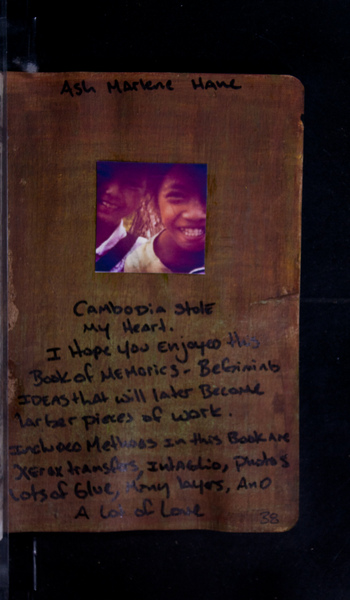 Ash Marlene Hane
Cambodia stole
my Heart.
I Hope you Enjoyed this
Book of Memories - Beginning
IDEAS that will later Become
larger pieces of work.
Included Methods In this Book Are
Xerox transfers, Intaglio, Photos
Lots of Glue, Many layers, And
A Lot of Love
38